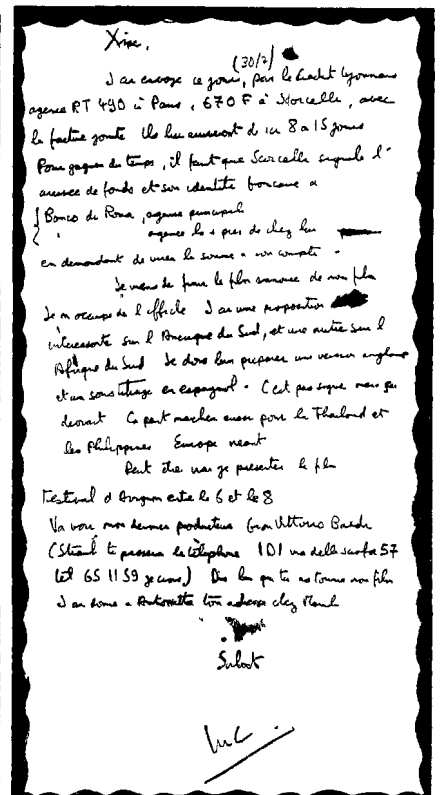 (30/7)
J'ai envoyé ce jour, par le Crédit Lyonnais
agence RT 490 à Paris, 670 F à Storcelle, avec
la facture jointe Ils lui arriveront d'ici 8 à 15 jours
Pour gagner du temps, il faut que signale l'
arrivée de fonds et son identité bancaire à
Banco di Roma, agence principale
" agence la + près de chez lui
en demandant de virer la somme à son compte.
Je viens de finir le film annonce de mon film
Je m'occupe de l'affiche J'ai une proposition
intéressante sur l'Amérique du Sud, et une autre sur l'
Afrique du Sud Je dois leur préparer une version anglaise
et un sous titrage en espagnol. C'est pas signé mais ça
devrait Ça peut marcher aussi pour la Thailand et
les Philippines Europe néant
Peut être vais je présenter le film
Festival d'Avignon entre le 6 et le 8
Va voir mon dernier producteur Gian Vittorio Baldi
( te passera le téléphone 101 via della 57
tel 65 11 59 je crois) Dis lui que tu as tourné mon film
J'ai donné à Antonietta ton adresse chez
Salut
Luc